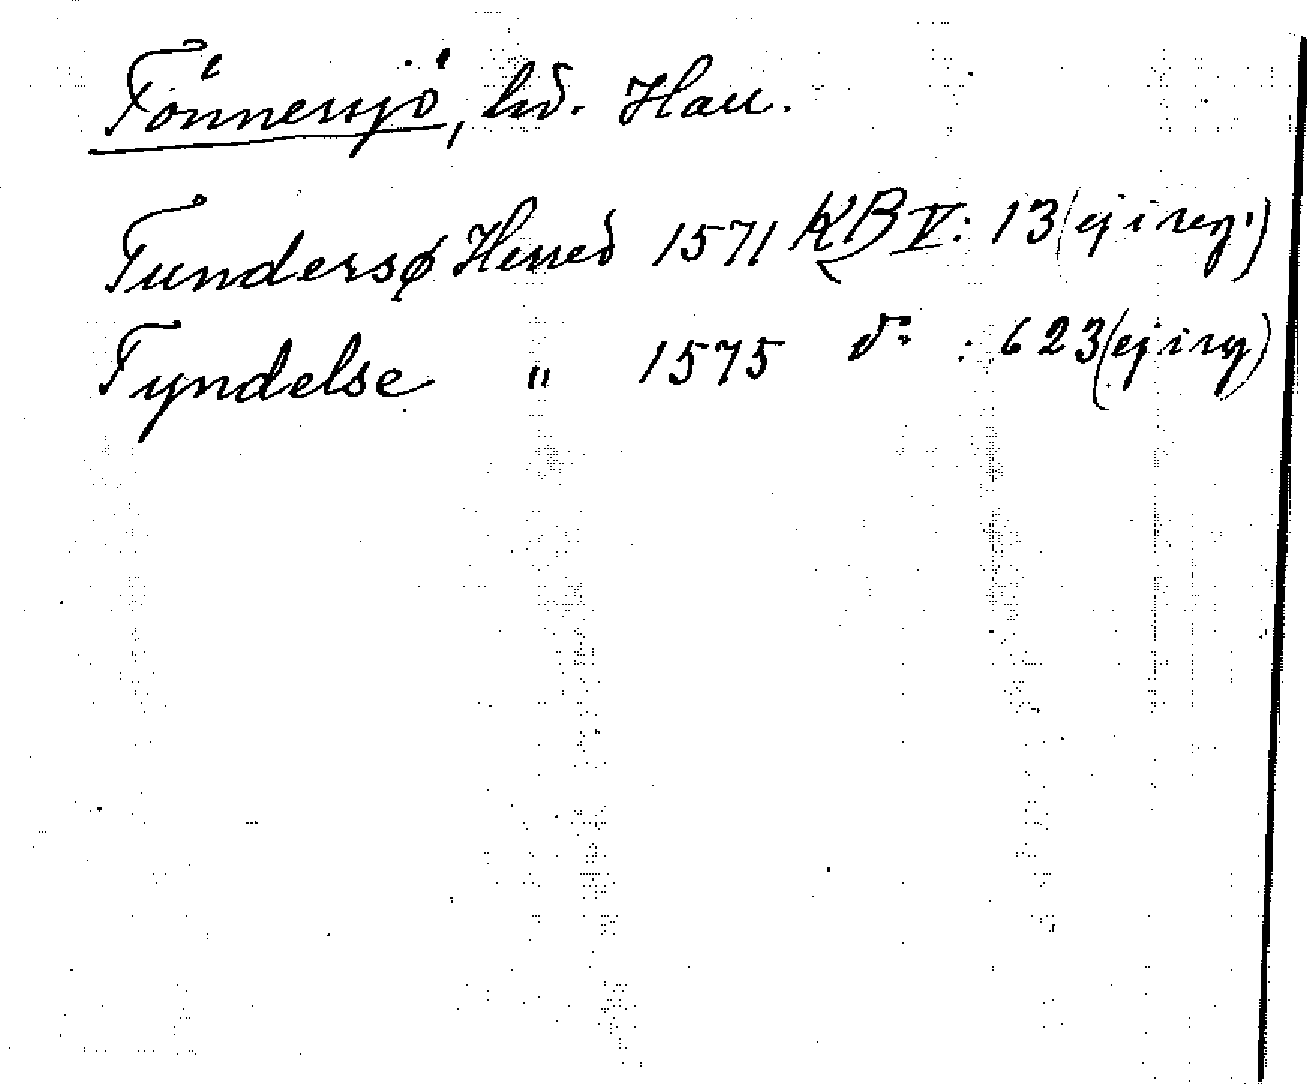 Tönnersjö, hd. Hall.
Tundersø Herred 1571 KB V: 13 (ej i reg.)
Tyndelse " 1575 do : 623 (ej i reg)